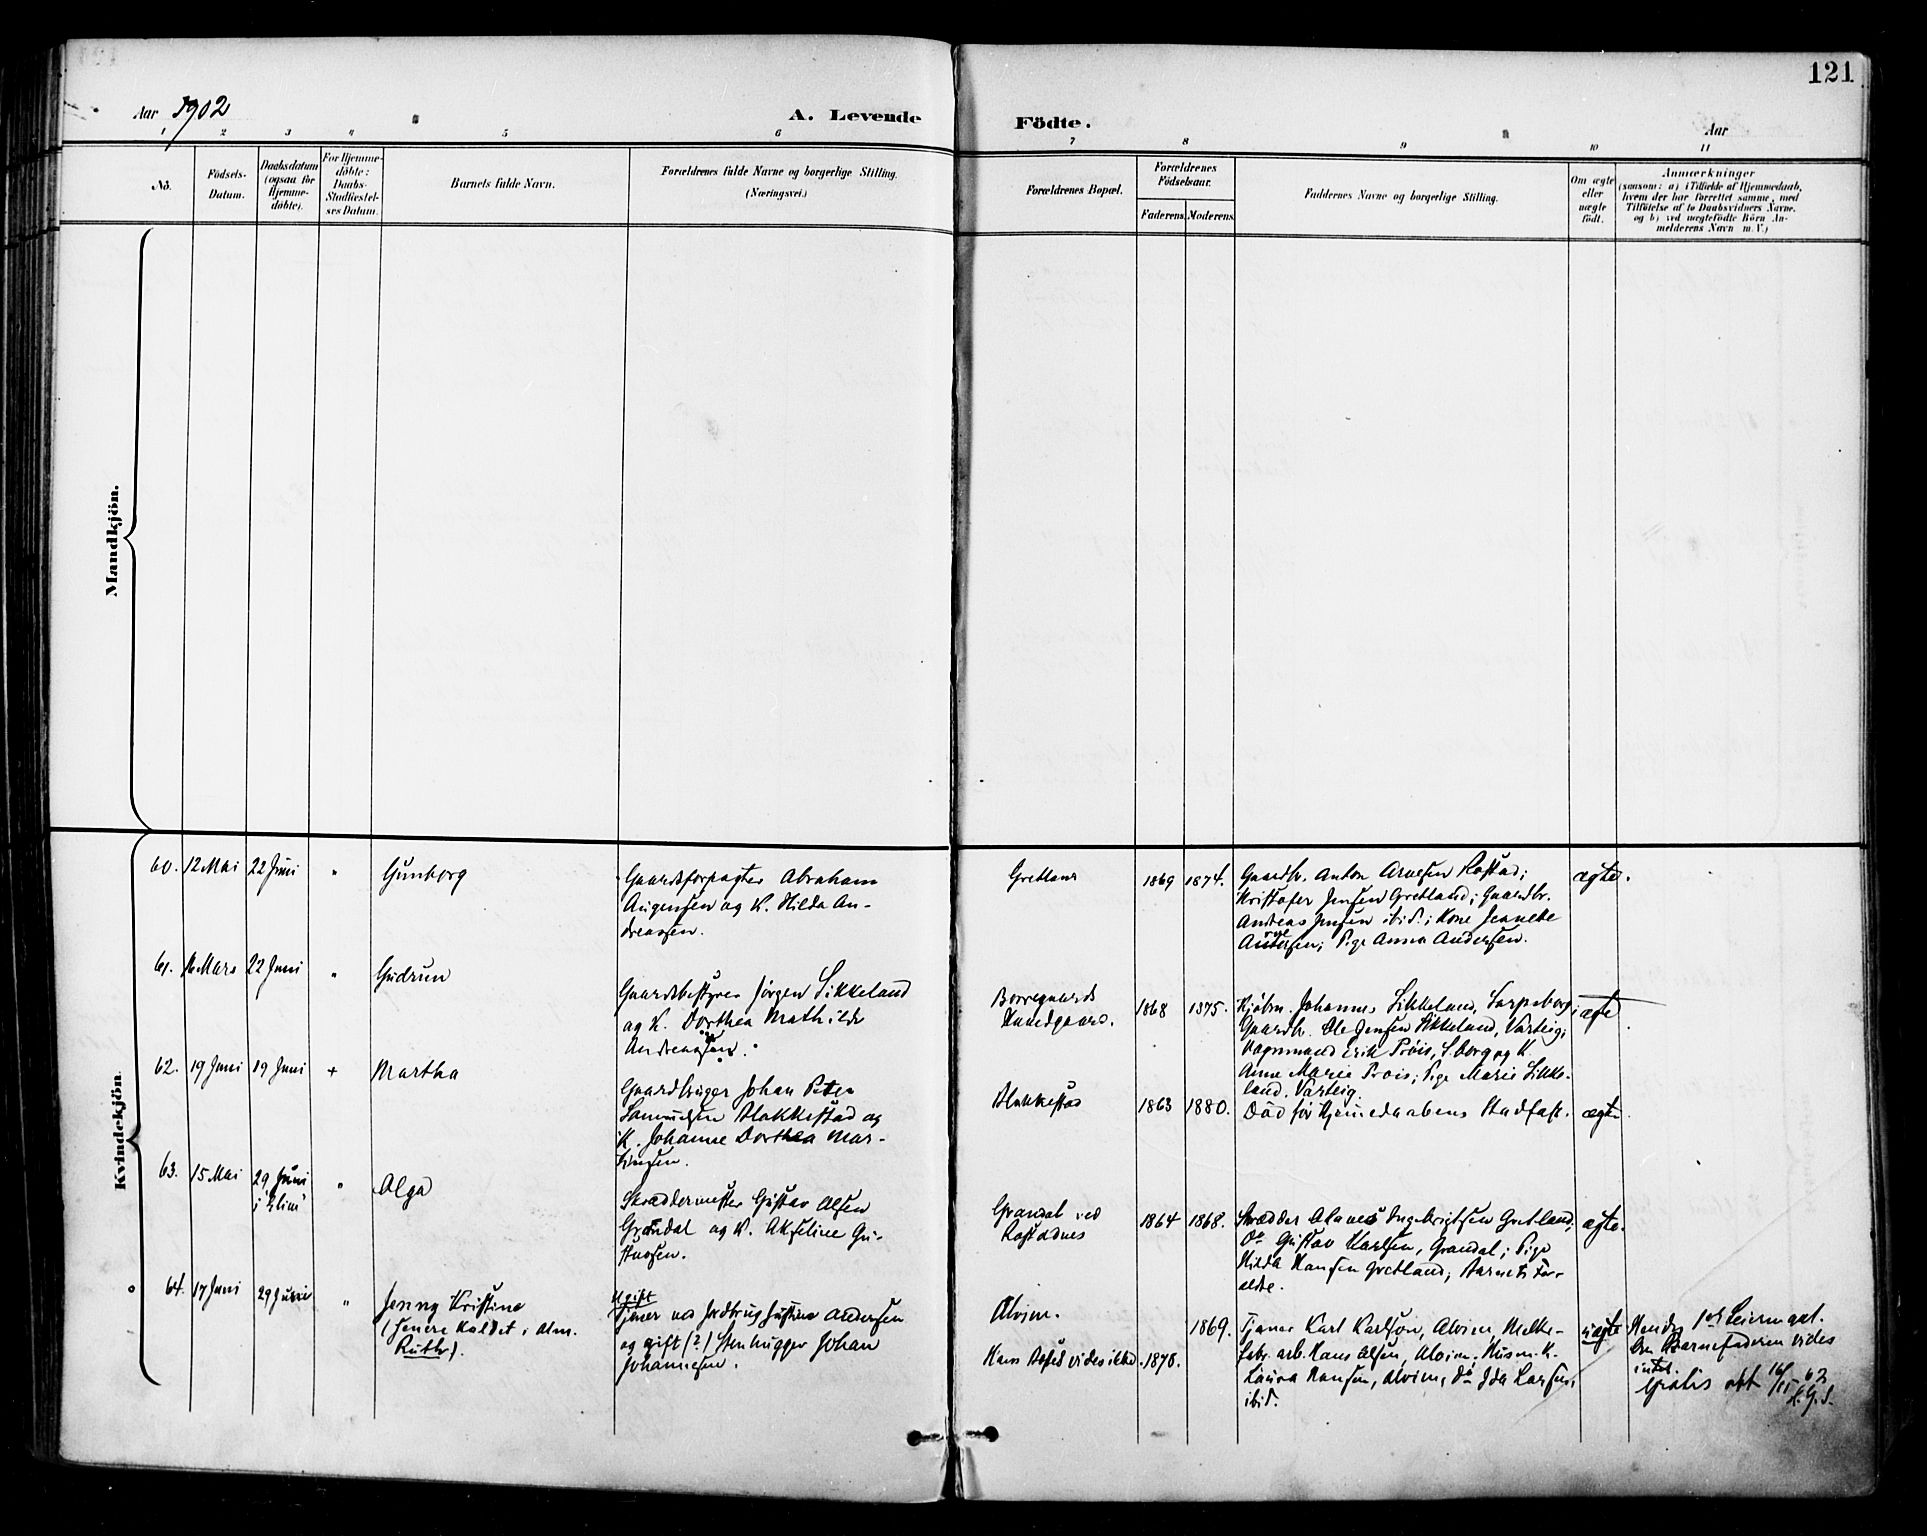 121
Aar 1902
A. Levende
Födte.
Aar
1 2 3 4 5 6 7 8 9 10 11
No.
Födsels-
Datum.
Daabsdatum
(ogsaa for
Hjemme-
döbte).
For Hjemme-
döbte:
Daabs-
Stadfæstel-
ses Datum.
Barnets fulde Navn.
Forældrenes fulde Navne og borgerlige Stilling.
(Næringsvei.)
Forældrenes Bopæl.
Forældrenes
Födselsaar.
Faderens
Moderens.
Faddernes Navne og borgerlige Stilling.
Om ægte
eller
uægte
födt.
Anmærkninger
(saasom: a) i Tilfælde af Hjemmedaab,
hvem der har forrettet samme, med
Tilföielse af to Daabsvidners Navne.
og b) ved uægtefödte Börn An-
melderens Navn m.V.)
Mandkjön.
Kvindekjön.
60. 12 Mai 22 Juni " Gunborg
Gaardsforpagter Abraham
Augensen og K. Hilda An-
dreassen.
Gretland 1869 1874.
Gaardbr. Anton Arnesen Rostad;
Kristofer Jensen Gretland; Gaardbr.
Andreas Jensen ibid.; Kone Jennette
Andersen; Pige Anna Andersen.
ægte.
61. Mars 22 Juni " Gudrun
Gaardsbestyrer Jörgen Likkeland
og K. Dorthea Mathilde
Andreassen.
Borregaards
Hovedgaard.
1868 1875.
Kjöbm. Johannes Likkeland, Sarpsborg;
Gaardbr. Ole Jensen Likkeland, Varteig;
Vognmand Erik Pröis, S.borg og K.
Anne Marie Pröis; Pige Marie Likke-
land, Varteig.
ægte
62. 19 Juni 19 Juni + Martha
Gaardbruger Johan Peter
Samuelsen Hakkestad og
K. Johanne Dorthea Mar-
tinsen.
Hakkestad 1863 1880.
Död för Hjemmedaabens Stadfæst.
ægte
63. 15 Mai 29 Juni
i Elim
" Olga
Skræddermester Gustav Olsen
Grændal og K. Akseline Gu-
stavsen.
Grændal ved
Rostadnes
1864 1868.
Skrædder Ingebrigtsen Gretland,
Do Gustav Karlsen, Grændal; Pige
Hilda Hansen Gretland; Barnets For-
ældre.
ægte.
64. 17 Juni 29 Juni " Jenny Kristine
(senere kaldet i Alm.
Ruth).
Ugift
Tjener ved Jordbrug Justine Andersen
og gift (?) Stenhugger Johan
Johannesen.
Alvim.
Hans Bopæl vides ikke.
1869.
1875.
Tjener Karl Karlson, Alvim, Melke-
fabr. arb. Hans Olsen, Alvim; Husm. K.
Laura Hansen, Alvim, do Ida Larsen,
ibid.
uægte
Hendes 1ste Leiermaal.
Om Barnefaderen vides
intet.
Gratis att 16/11 62